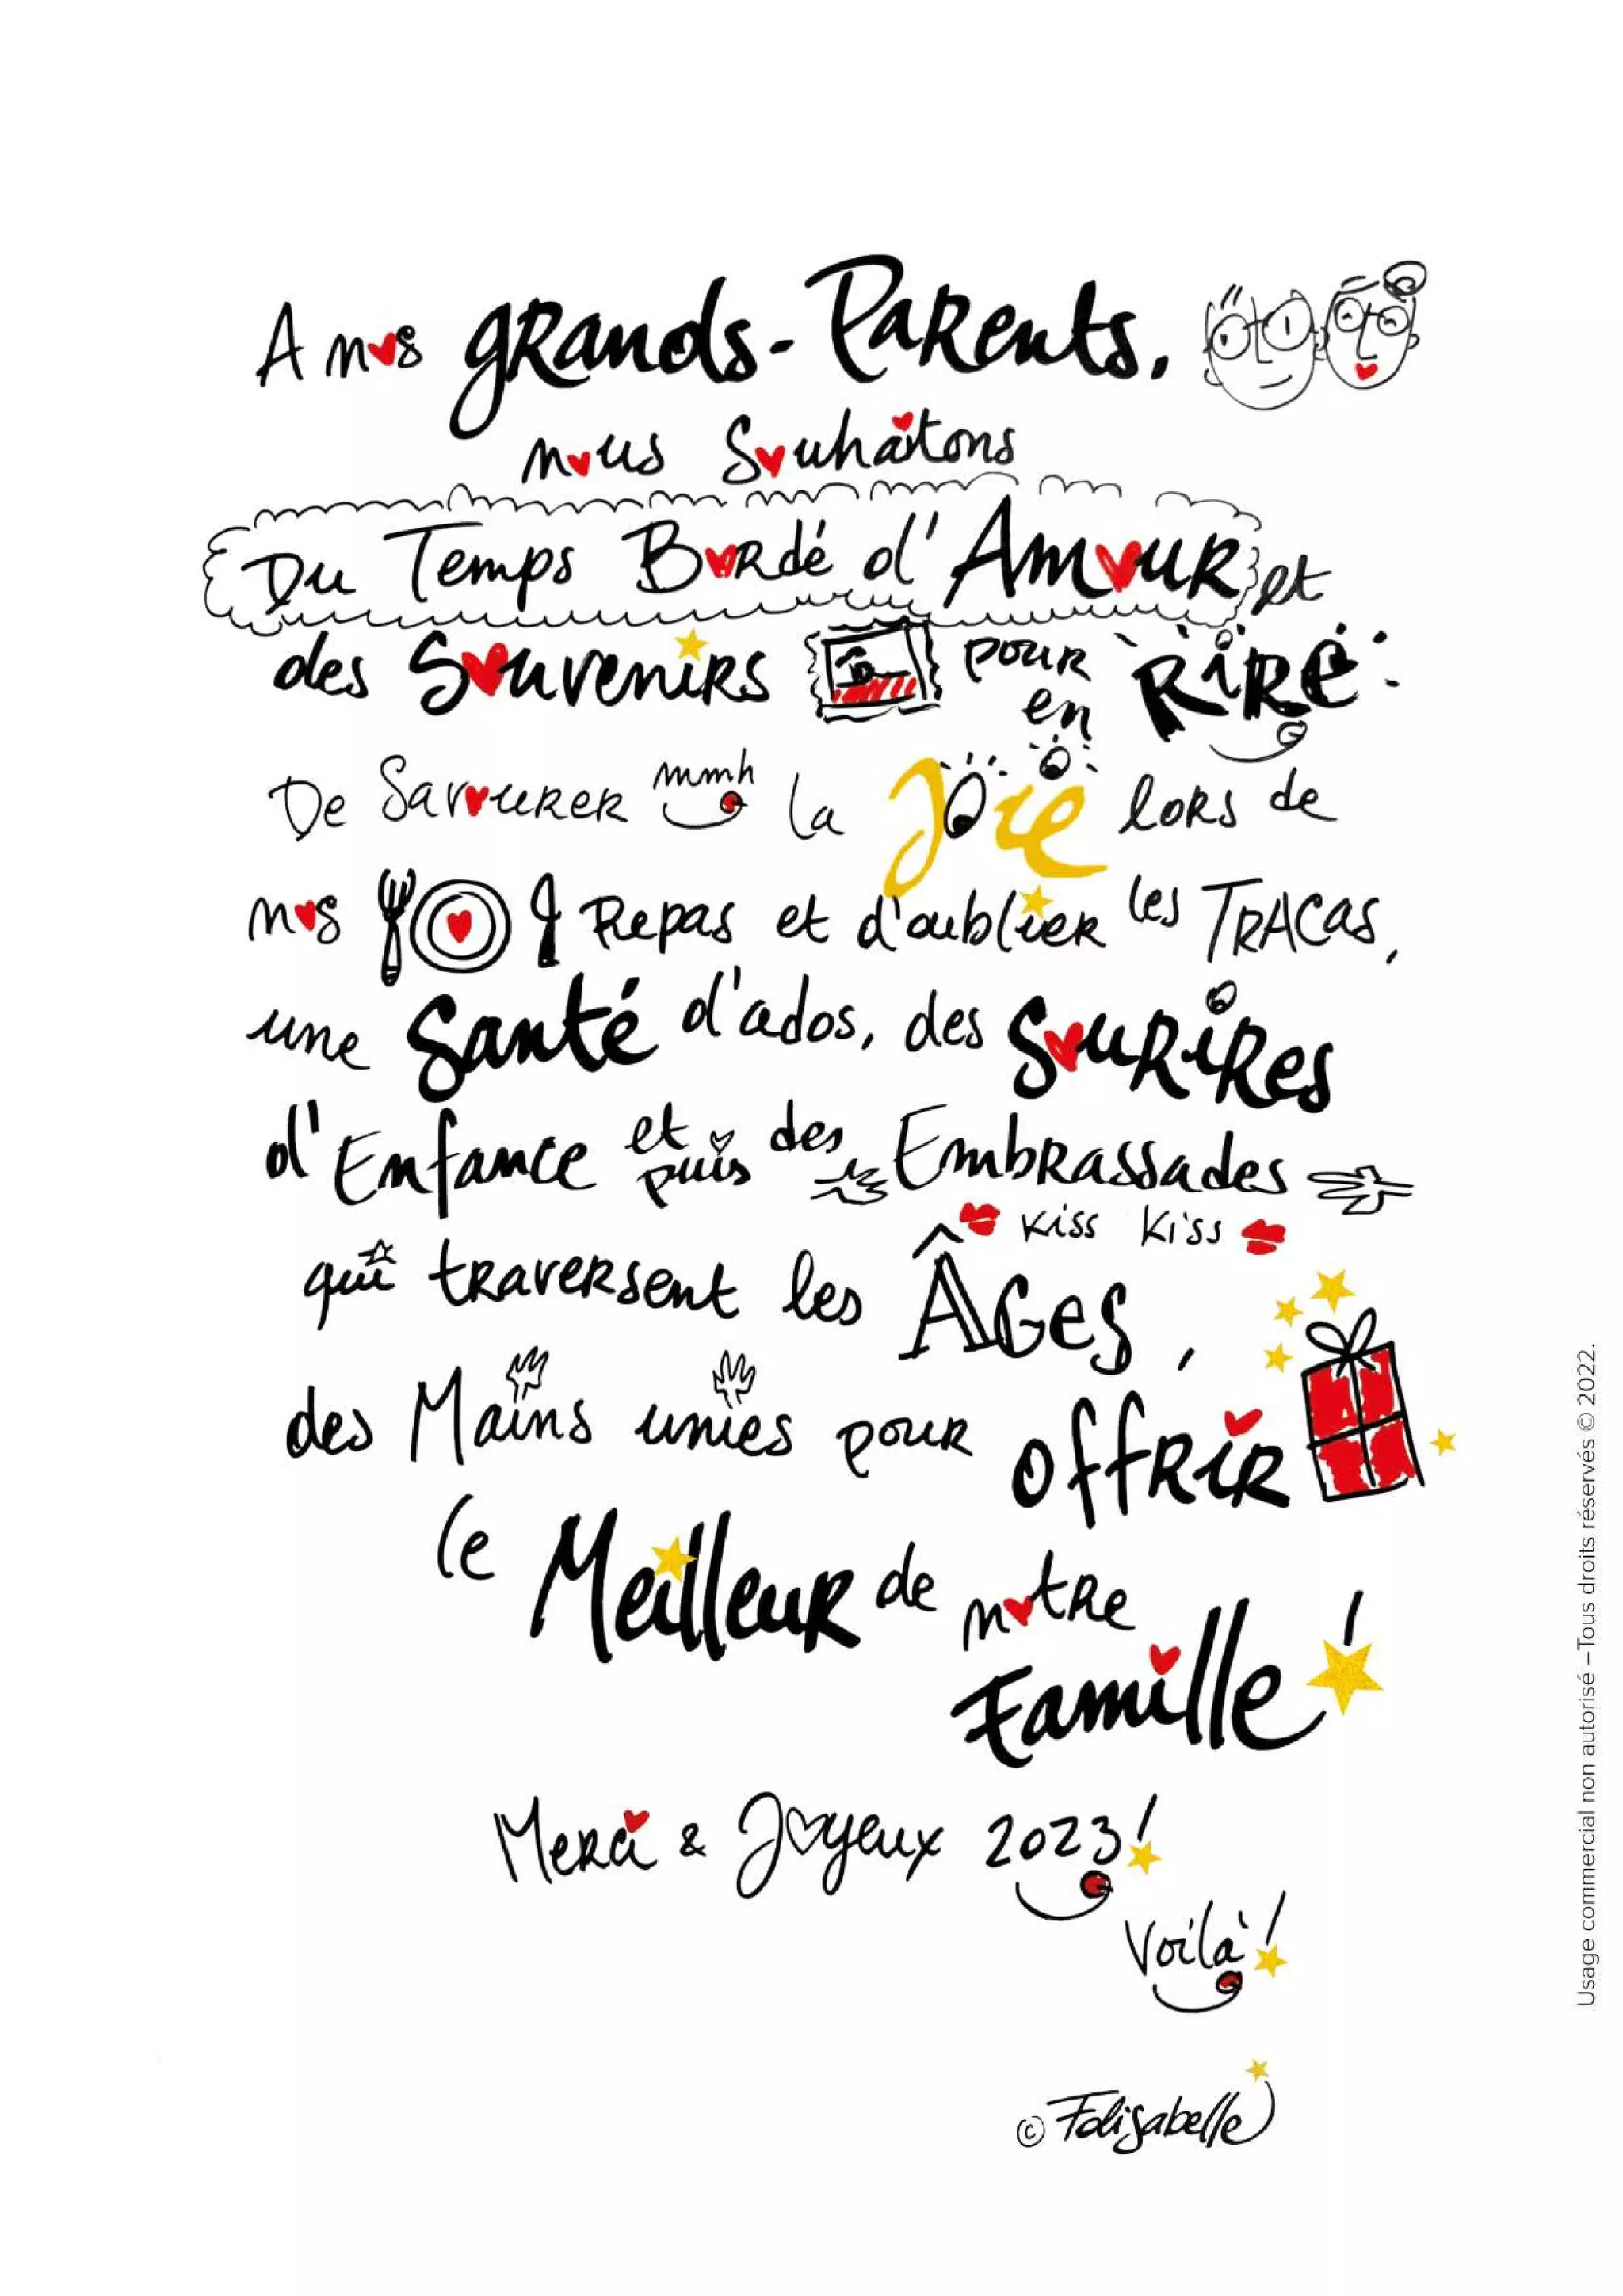 A nos grands-Parents,
nous Souhaitons
Du Temps Bordé d'Amour et
des Souvenirs pour en Rire
De Savourer mmh la Joie lors de
nos Repas et d'oublier les TRACas,
une Santé d'ados, des Sourires
d'Enfance et puis des Embrassades
Kiss Kiss
qui traversent les Âges,
des Mains unies pour offrir
le Meilleur de notre
Famille !
Merci & Joyeux 2023 !
Voilà !
© Folisabelle
Usage commercial non autorisé – Tous droits réservés © 2022.